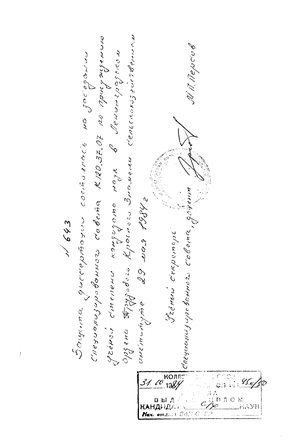 N 643
Защита диссертации состоялась на заседании
специализированного совета К.120.37.07 по присуждению
учёной степени кандидата наук в Ленинградском
ордена Трудового Красного Знамени сельскохозяйственном
институте 29 мая 1984 г
Учёный секретарь
специализированного совета, доцент М.П. Персов
ВЫД ДИПЛОМ
КАНДИДАТ НАУК